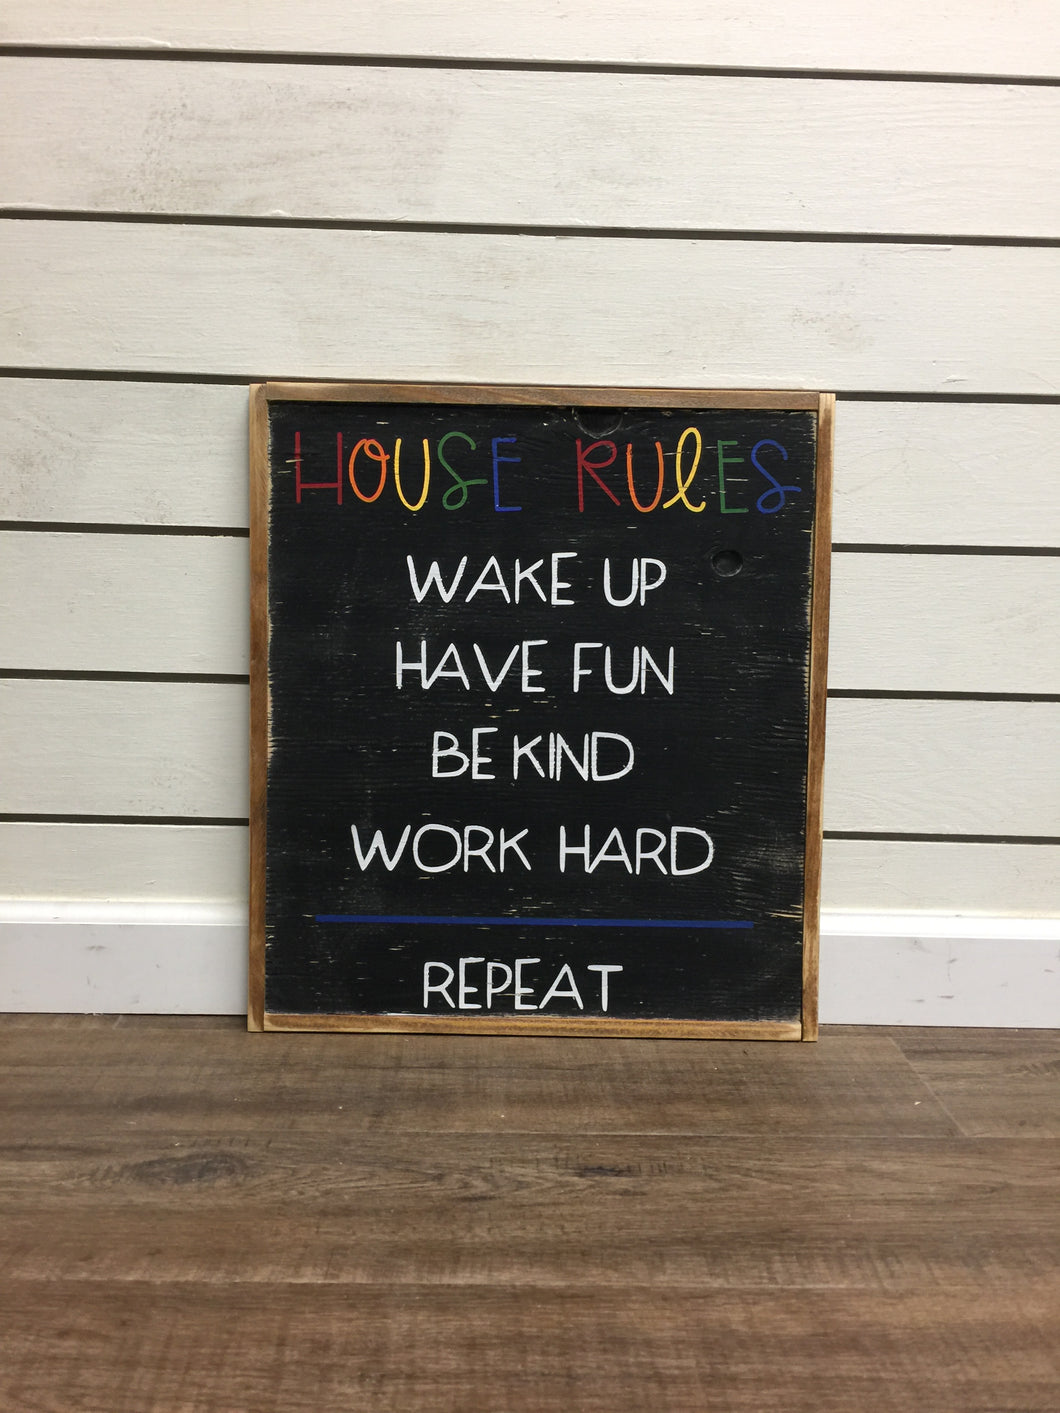 HOUSE RULES
WAKE UP
HAVE FUN
BE KIND
WORK HARD
REPEAT